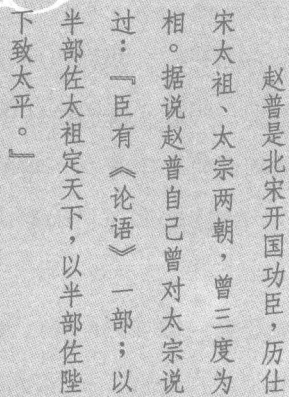 赵普是北宋开国功臣，历仕
宋太祖、太宗两朝，曾三度为
相。据说赵普自己曾对太宗说
过：『臣有《论语》一部；以
半部佐太祖定天下，以半部佐陛
下致太平。』